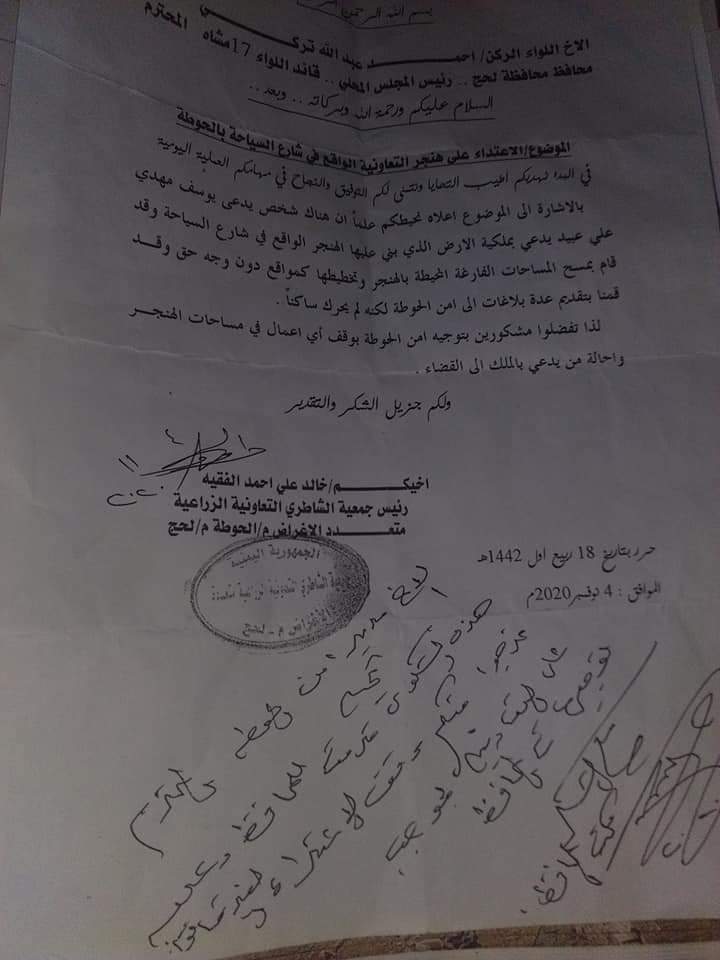 بسم الله الرحمن
الاخ اللواء الركن/ احمـــد عبد الله تركـــي
محافظ محافظة لحج .. رئيس المجلس المحلي .. قائد اللواء 17 مشاه المحترم
السلام عليكم ورحمة الله وبركاته .. وبعد ..
الموضوع/الاعتداء على هنجر التعاونية الواقع في شارع السياحة بالحوطة
في البدا نهديكم اطيب التحايا ونتمنى لكم التوفيق والنجاح في مهامكم العملية اليومية
بالاشارة الى الموضوع اعلاه نحيطكم علماً ان هناك شخص يدعى يوسف مهدي
علي عبيد يدعي بملكية الارض الذي بني عليها الهنجر الواقع في شارع السياحة وقد
قام بمسح المساحات الفارغة المحيطة بالهنجر وتخطيطها كمواقع دون وجه حق وقـــد
قمنا بتقديم عدة بلاغات الى امن الحوطة لكنه لم يحرك ساكناً .
لذا تفضلوا مشكورين بتوجيه امن الحوطة بوقف أي اعمال في مساحات الهنجـــر
واحالة من يدعي بالملك الى القضاء .
ولكم جزيل الشكر والتقدير
اخيكـــــم/خالد علي احمد الفقيه
رئيس جمعية الشاطري التعاونية الزراعية
متعـــدد الاغراض م/الحوطة م/لحج
حرر بتاريخ 18 ربيع اول 1442هـ
الموافق : 4 نوفمبر2020م
الجمهورية اليمنية
جمعية الشاطري التعاونية الزراعية متعددة
الاغراض م - لحج
الاخ مدير امن الحوطة المحترم
هذه الشكوى قدمت للمحافظ وعليه